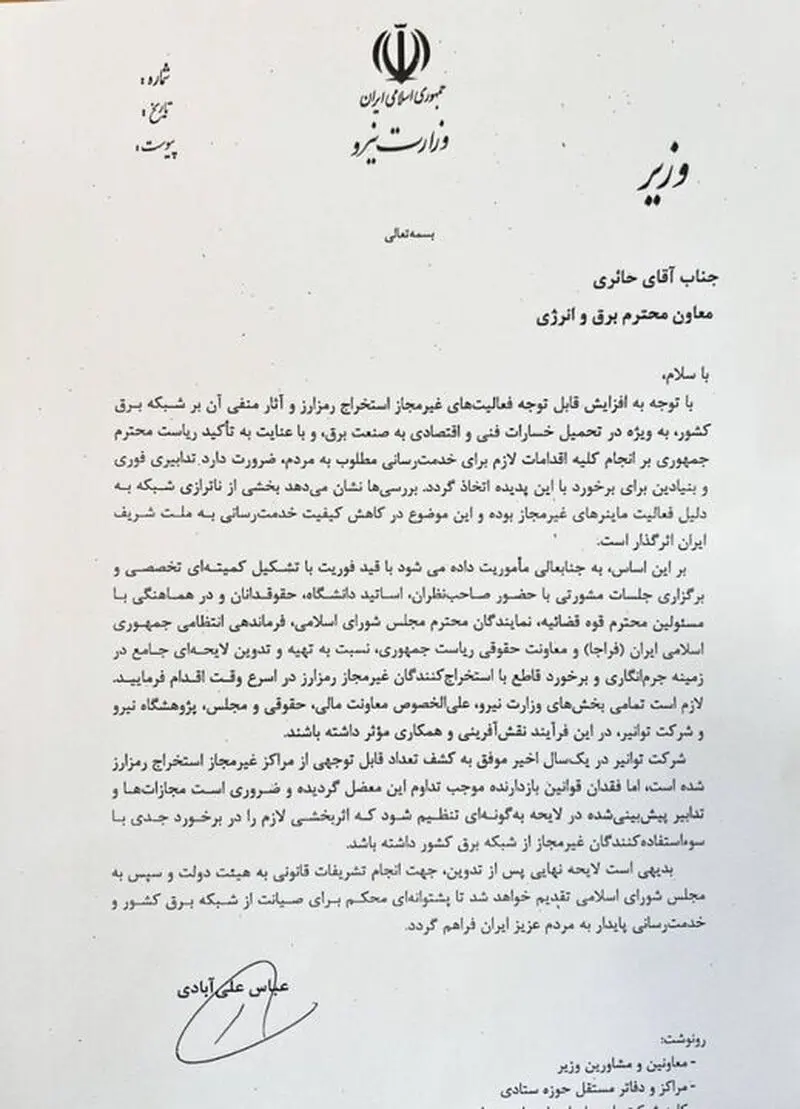 جمهوری اسلامی ایران
وزارت نیرو
شماره:
تاریخ:
پیوست:
وزیر
بسمه‌تعالی
جناب آقای حائری
معاون محترم برق و انرژی
با سلام،
با توجه به افزایش قابل توجه فعالیت‌های غیرمجاز استخراج رمزارز و آثار منفی آن بر شبکه برق
کشور، به ویژه در تحمیل خسارات فنی و اقتصادی به صنعت برق، و با عنایت به تأکید ریاست محترم
جمهوری بر انجام کلیه اقدامات لازم برای خدمت‌رسانی مطلوب به مردم، ضرورت دارد تدابیری فوری
و بنیادین برای برخورد با این پدیده اتخاذ گردد. بررسی‌ها نشان می‌دهد بخشی از ناترازی شبکه به
دلیل فعالیت ماینرهای غیرمجاز بوده و این موضوع در کاهش کیفیت خدمت‌رسانی به ملت شریف
ایران اثرگذار است.
بر این اساس، به جنابعالی مأموریت داده می شود با قید فوریت با تشکیل کمیته‌ای تخصصی و
برگزاری جلسات مشورتی با حضور صاحب‌نظران، اساتید دانشگاه، حقوقدانان و در هماهنگی با
مسئولین محترم قوه قضائیه، نمایندگان محترم مجلس شورای اسلامی، فرماندهی انتظامی جمهوری
اسلامی ایران (فراجا) و معاونت حقوقی ریاست جمهوری، نسبت به تهیه و تدوین لایحه‌ای جامع در
زمینه جرم‌انگاری و برخورد قاطع با استخراج‌کنندگان غیرمجاز رمزارز در اسرع وقت اقدام فرمایید.
لازم است تمامی بخش‌های وزارت نیرو، علی‌الخصوص معاونت مالی، حقوقی و مجلس، پژوهشگاه نیرو
و شرکت توانیر، در این فرآیند نقش‌آفرینی و همکاری مؤثر داشته باشند.
شرکت توانیر در یک‌سال اخیر موفق به کشف تعداد قابل توجهی از مراکز غیرمجاز استخراج رمزارز
شده است، اما فقدان قوانین بازدارنده موجب تداوم این معضل گردیده و ضروری است مجازات‌ها و
تدابیر پیش‌بینی‌شده در لایحه به‌گونه‌ای تنظیم شود که اثربخشی لازم را در برخورد جدی با
سوءاستفاده‌کنندگان غیرمجاز از شبکه برق کشور داشته باشد.
بدیهی است لایحه نهایی پس از تدوین، جهت انجام تشریفات قانونی به هیئت دولت و سپس به
مجلس شورای اسلامی تقدیم خواهد شد تا پشتوانه‌ای محکم برای صیانت از شبکه برق کشور و
خدمت‌رسانی پایدار به مردم عزیز ایران فراهم گردد.
عباس علی‌آبادی
رونوشت:
- معاونین و مشاورین وزیر
- مراکز و دفاتر مستقل حوزه ستادی